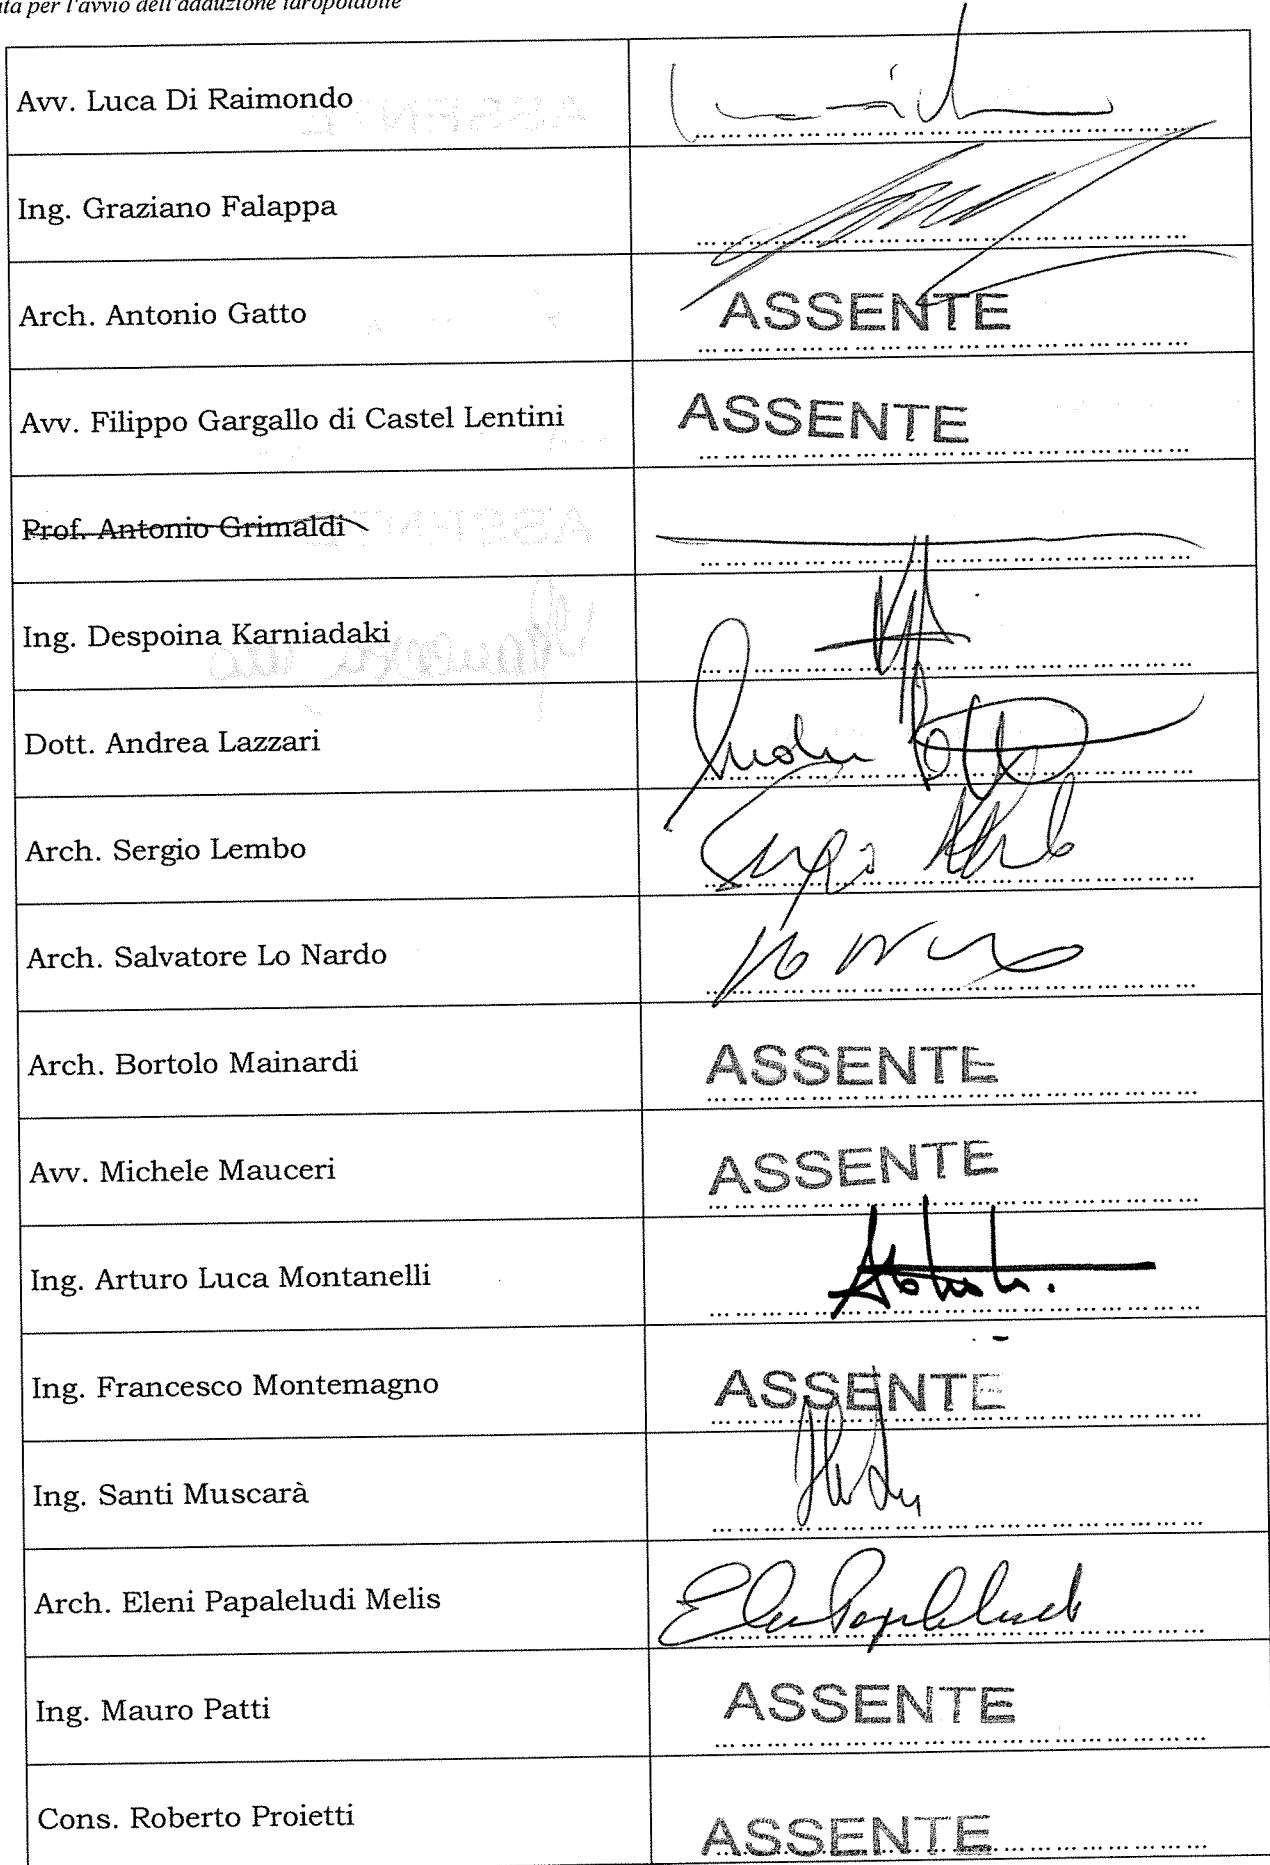 ta per l'avvio dell'adduzione idropotabile
Avv. Luca Di Raimondo
Ing. Graziano Falappa
Arch. Antonio Gatto ASSENTE
Avv. Filippo Gargallo di Castel Lentini ASSENTE
Prof. Antonio Grimaldi
Ing. Despoina Karniadaki
Dott. Andrea Lazzari
Arch. Sergio Lembo
Arch. Salvatore Lo Nardo
Arch. Bortolo Mainardi ASSENTE
Avv. Michele Mauceri ASSENTE
Ing. Arturo Luca Montanelli
Ing. Francesco Montemagno ASSENTE
Ing. Santi Muscarà
Arch. Eleni Papaleludi Melis
Ing. Mauro Patti ASSENTE
Cons. Roberto Proietti ASSENTE